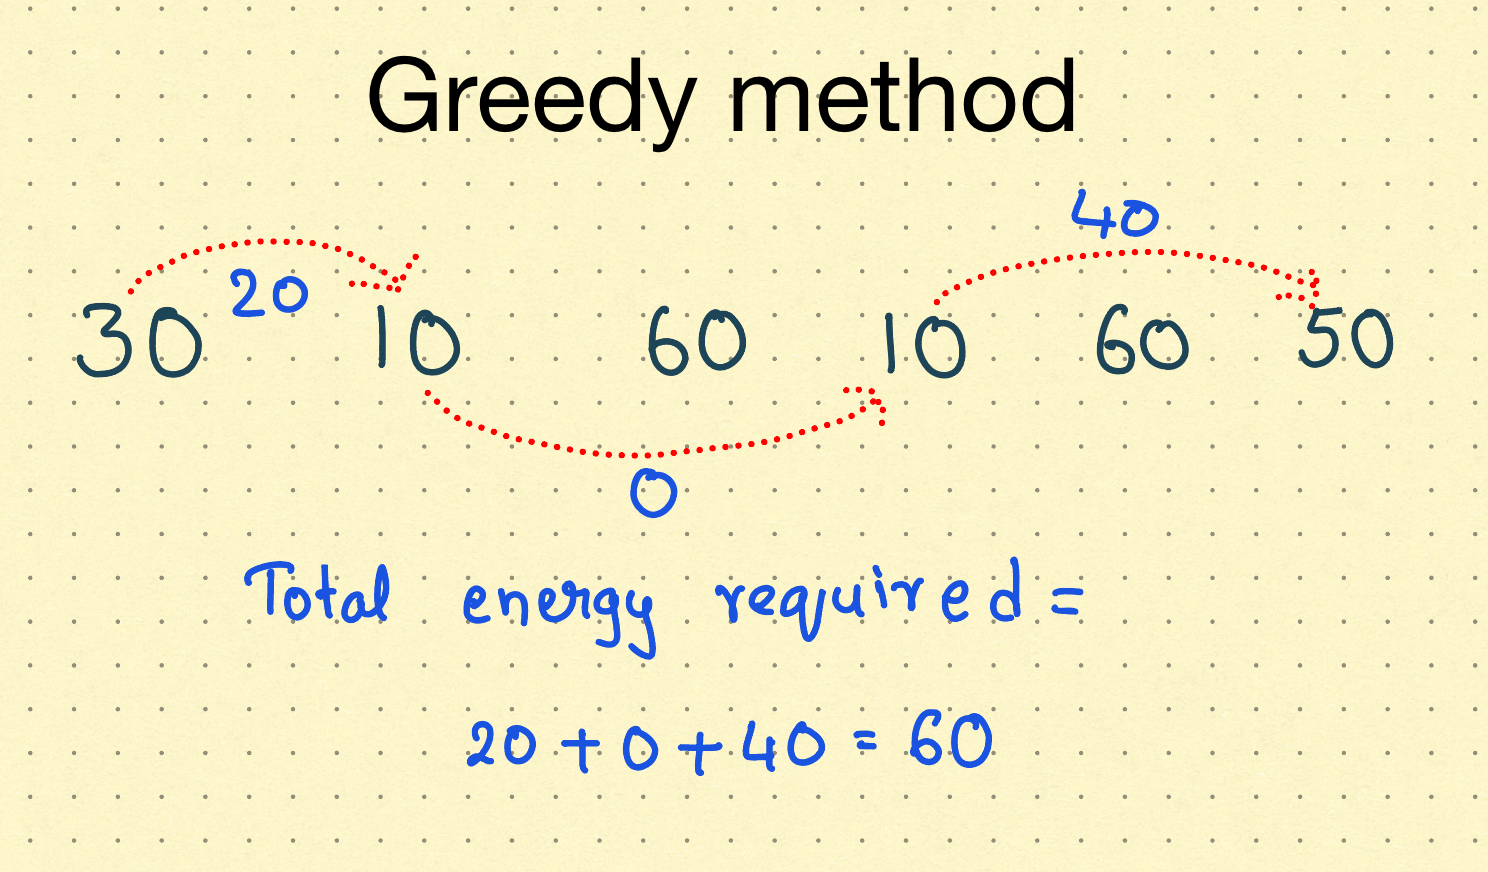 Greedy method
40
20
30 10 60 10 60 50
0
Total energy required =
20 + 0 + 40 = 60